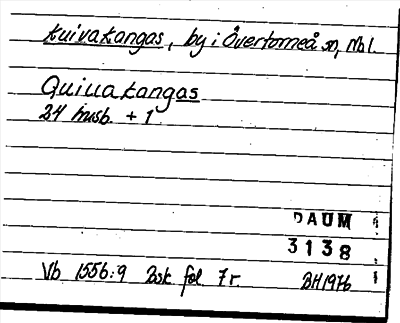 Kuivakangas, by i Övertorneå sn, Nbl.
Quiuakangas
24 husb. + 1
DAUM
3138
Vb 1556:9 Bsk fol 7r. BH1976